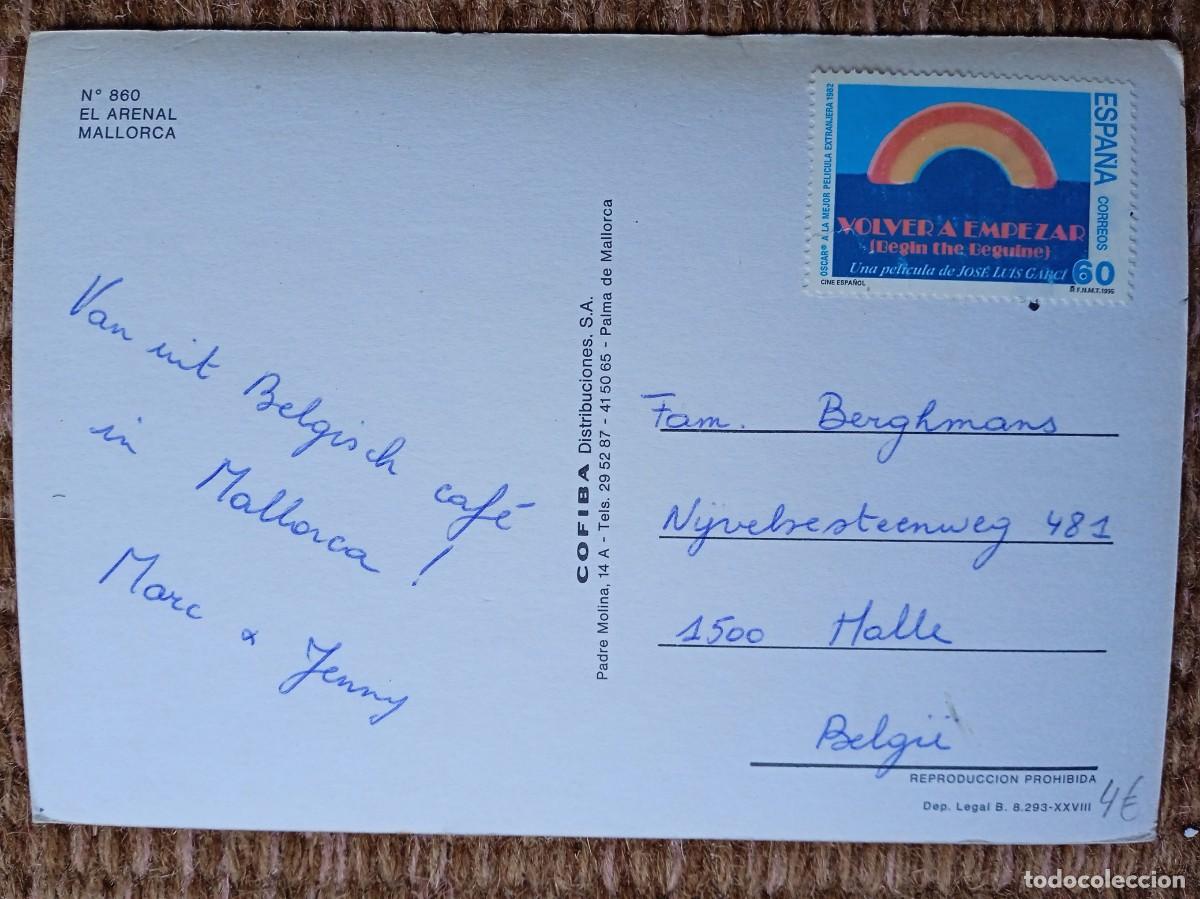 N° 860
EL ARENAL
MALLORCA
Van uit Belgisch café
in Mallorca !
Marc & Jenny
COFIBA Distribuciones, S.A.
Padre Molina, 14 A - Tels. 29 52 87 - 41 50 65 - Palma de Mallorca
OSCAR® A LA MEJOR PELICULA EXTRANJERA 1982
ESPAÑA CORREOS
VOLVER A EMPEZAR
(Begin the Beguine)
Una película de JOSÉ LUIS GARCI
60
CINE ESPAÑOL
F.N.M.T. 1995
Fam. Berghmans
Nijvelsesteenweg 481
1500 Halle
België
REPRODUCCION PROHIBIDA
Dep. Legal B. 8.293-XXVIII
4€
todocoleccion